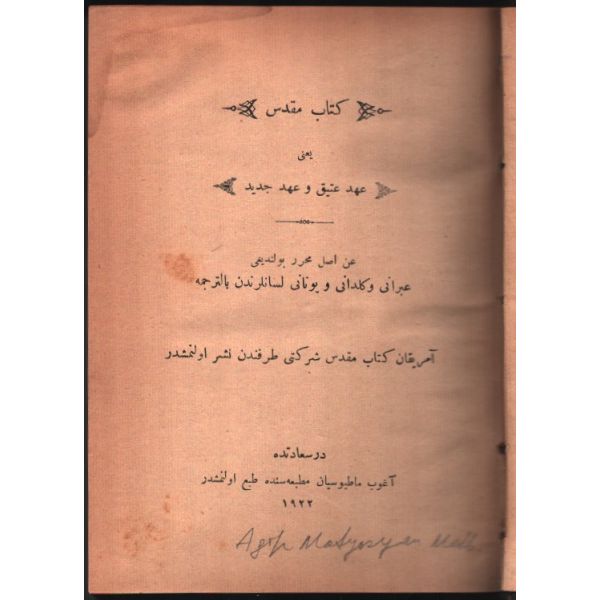 كتاب مقدس
يعنى
عهد عتيق و عهد جديد
عن اصل محرر بولنديغى
عبرانى و كلدانى و يونانى لسانلرندن بالترجمه
آمريقان كتاب مقدس شركتى طرفندن نشر اولنمشدر
درسعادتده
آغوب ماطيوسيان مطبعه‌سنده طبع اولنمشدر
١٩٢٢
Agop Matyosyan Matb.